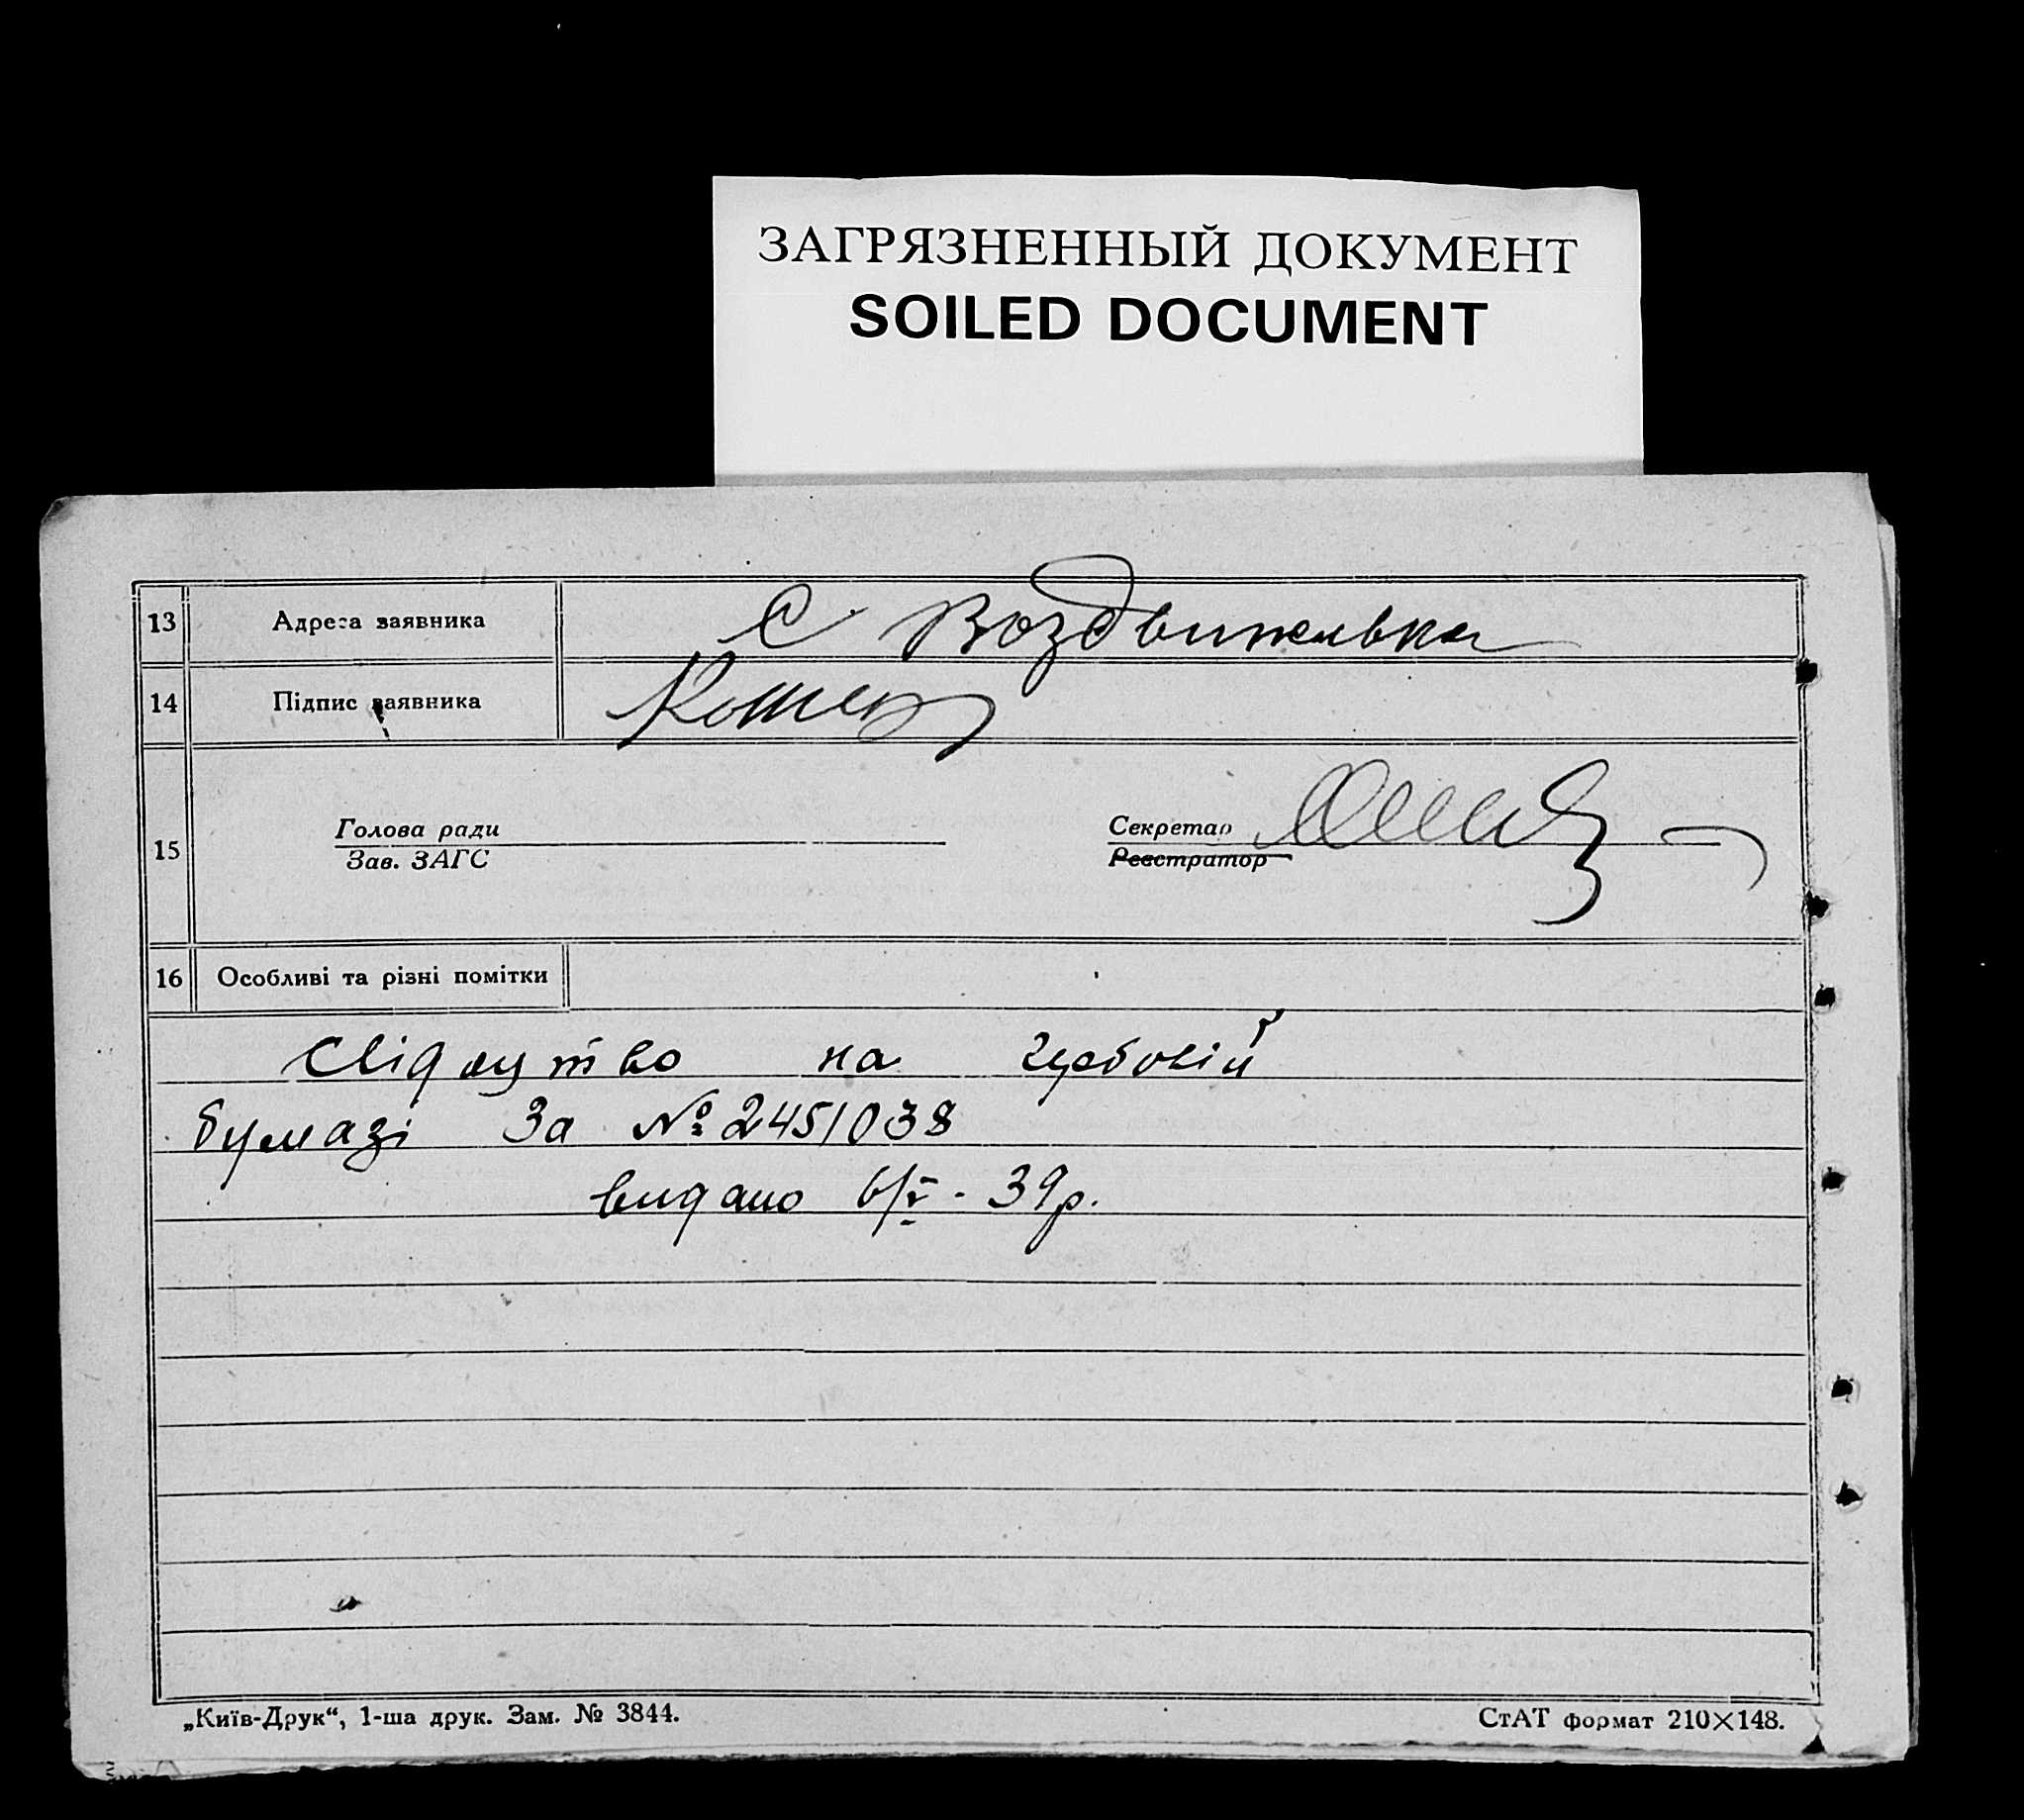 ЗАГРЯЗНЕННЫЙ ДОКУМЕНТ
SOILED DOCUMENT
13 Адреса заявника С Воздвижевка
14 Підпис заявника
15 Голова ради Секретар
Зав. ЗАГС Реєстратор
16 Особливі та різні помітки
Свідоцтво на гербовій
бумазі За № 2451038
видано 6/V - 39р.
„Київ-Друк“, 1-ша друк. Зам. № 3844. СтАТ формат 210×148.